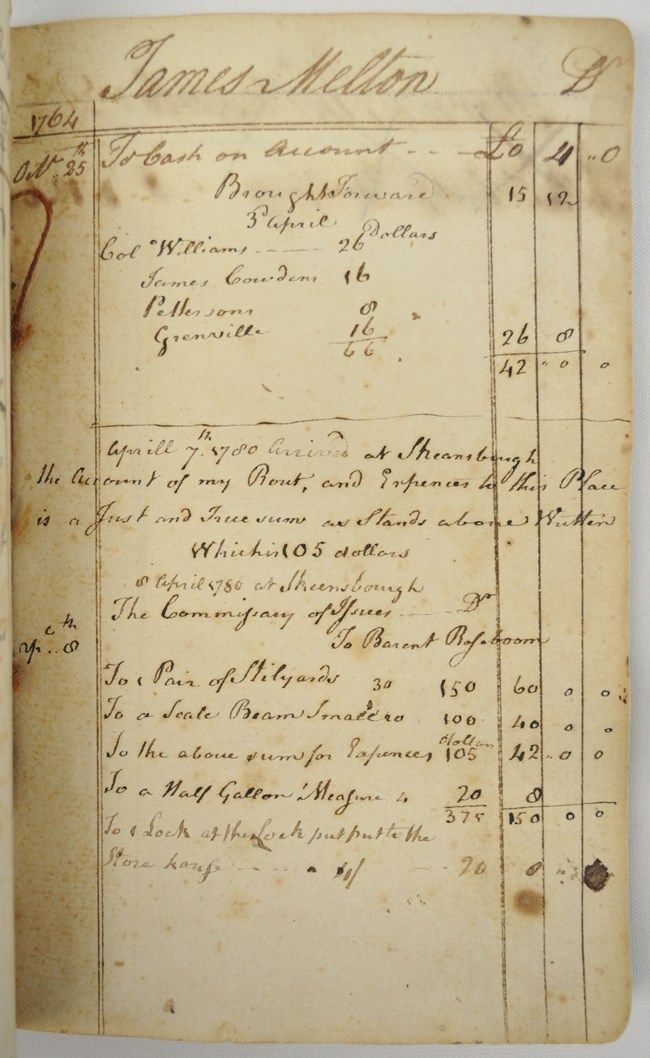 James Melton Dr
1764
Octr. 25th To Cash on Account - - - £0 4 ,,0
Brought Forward 15 12
3d April
Dollars
Colo Williams - - - 26
James Cowdens 16
Pettersons 8
Grenville 16 26 8
66 42 ,, 0 0
Aprill 7th. 1780 arrived at Skeansbough
the Account of my Rout, and Expences to this Place
is a Just and True sum as Stands above Wutten
Which is 105 dollars
8 April 1780 at Skeensbough
The Commissary of Issues - - - Dr
Ap. 8th To Barent Roseboom
To 1 Pair of Stilyards 30 150 60 0 0
To a Scale Beam Small 20 100 40 0 0
dollars
To the above sum for Expences 105 42 ,, 0 0
To a Half Gallon Measure 4 20 8
375 150 0 0
To 1 Lock at the Lock put put to the
Store house - - - - 4/ - - 20 8